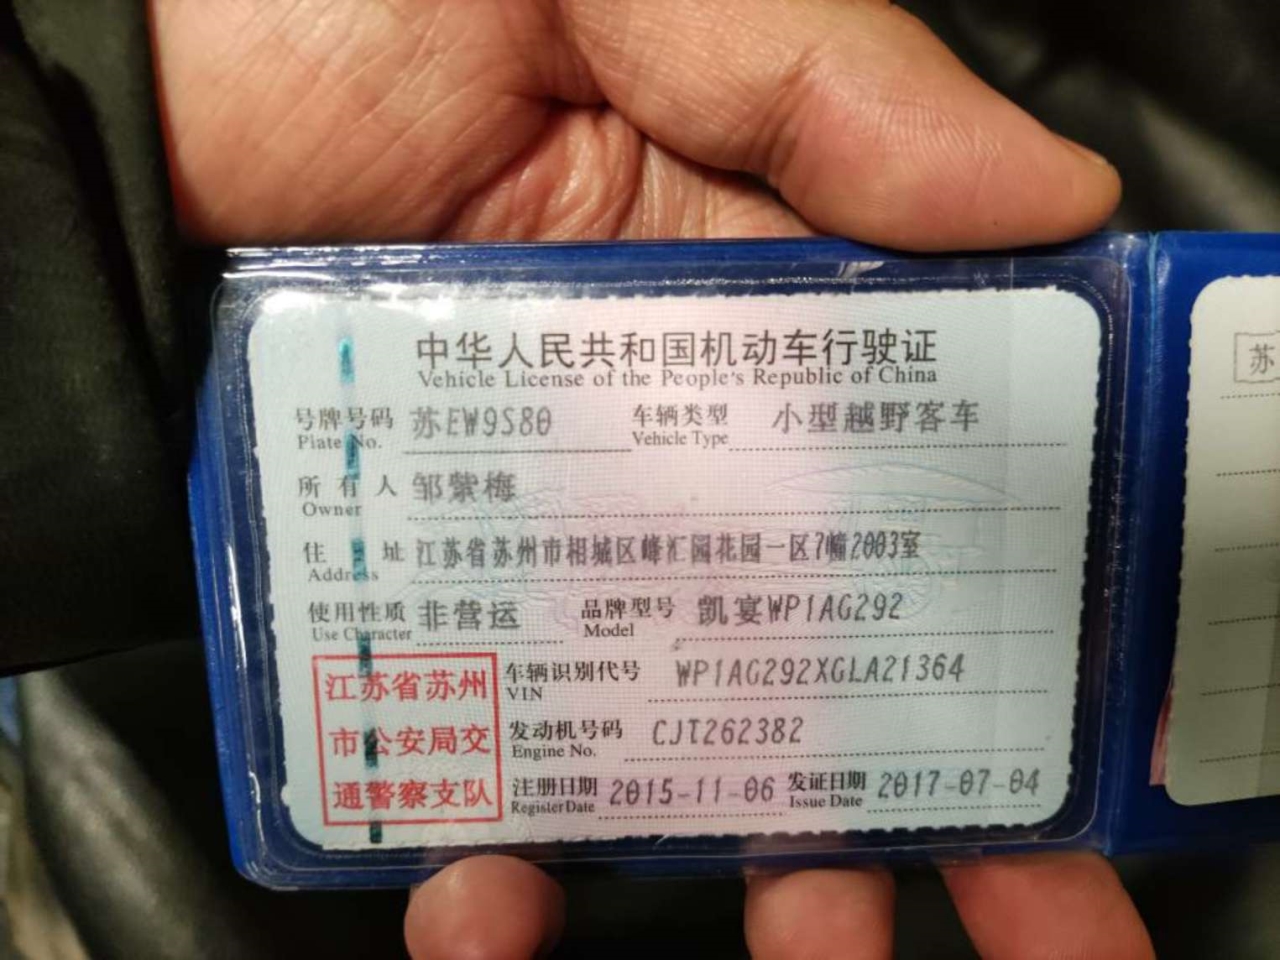 中华人民共和国机动车行驶证
Vehicle License of the People's Republic of China
号牌号码 苏EW9S80 车辆类型 小型越野客车
Plate No. Vehicle Type
所有人 邹紫梅
Owner
住址 江苏省苏州市相城区峰汇园花园一区7幢2003室
Address
使用性质 非营运 品牌型号 凯宴WP1AG292
Use Character Model
江苏省苏州
市公安局交
通警察支队
车辆识别代号 WP1AG292XGLA21364
VIN
发动机号码 CJT262382
Engine No.
注册日期 2015-11-06 发证日期 2017-07-04
Register Date Issue Date
苏